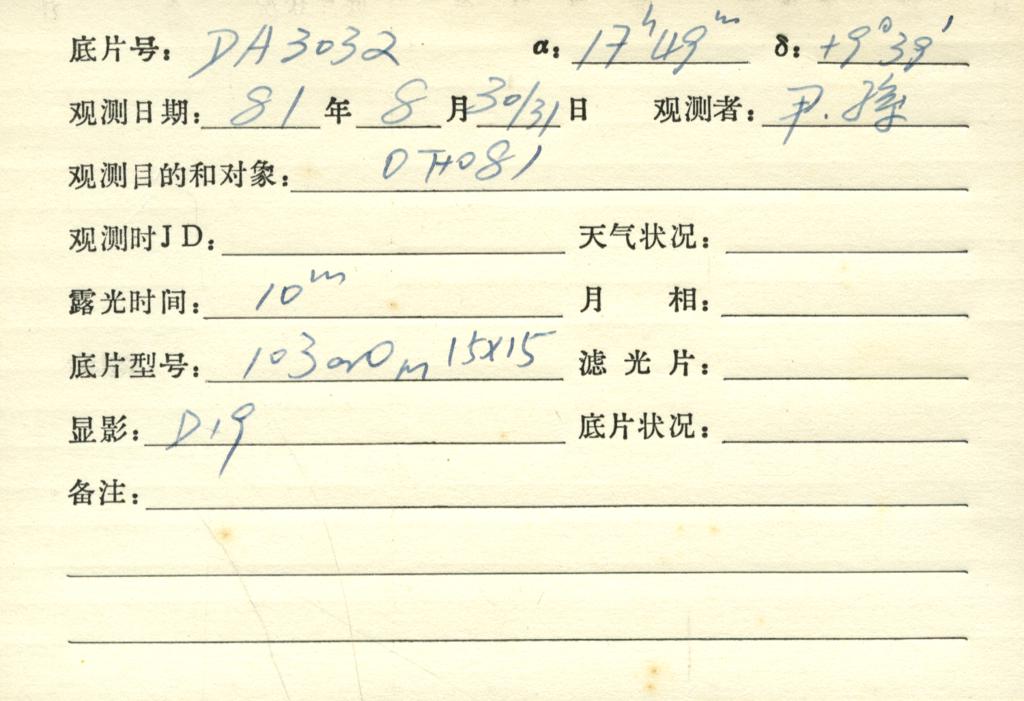 底片号: DA3032 α: 17ʰ49ᵐ δ: +9°39′
观测日期: 81 年 8 月 30/31 日 观测者: 尹.孫
观测目的和对象: OTH081
观测时JD: 天气状况:
露光时间: 10ᵐ 月 相:
底片型号: 103aO 15×15 滤光片:
显影: D19 底片状况:
备注: